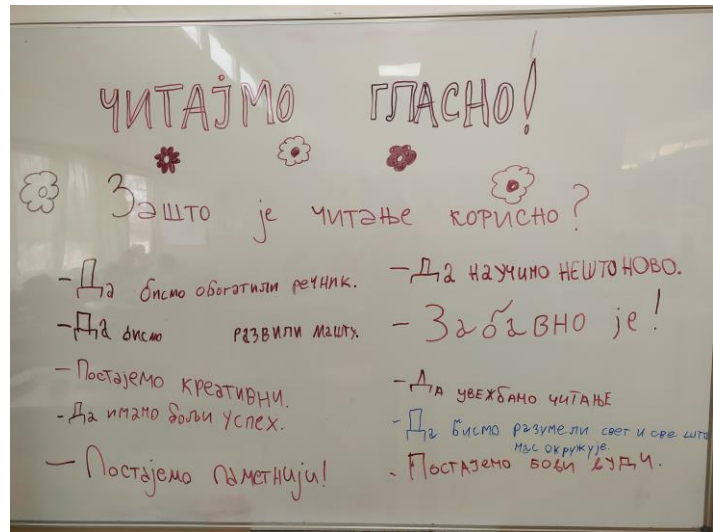 ЧИТАЈМО ГЛАСНО!
Зашто је читање корисно?
- Да бисмо обогатили речник.
- Да бисмо развили машту.
- Постајемо креативни.
- Да имамо бољи успех.
- Постајемо паметнији!
- Да научимо нешто ново.
- Забавно је!
- Да увежбамо читање
- Да бисмо разумели свет и све што
нас окружује.
- Постајемо бољи људи.